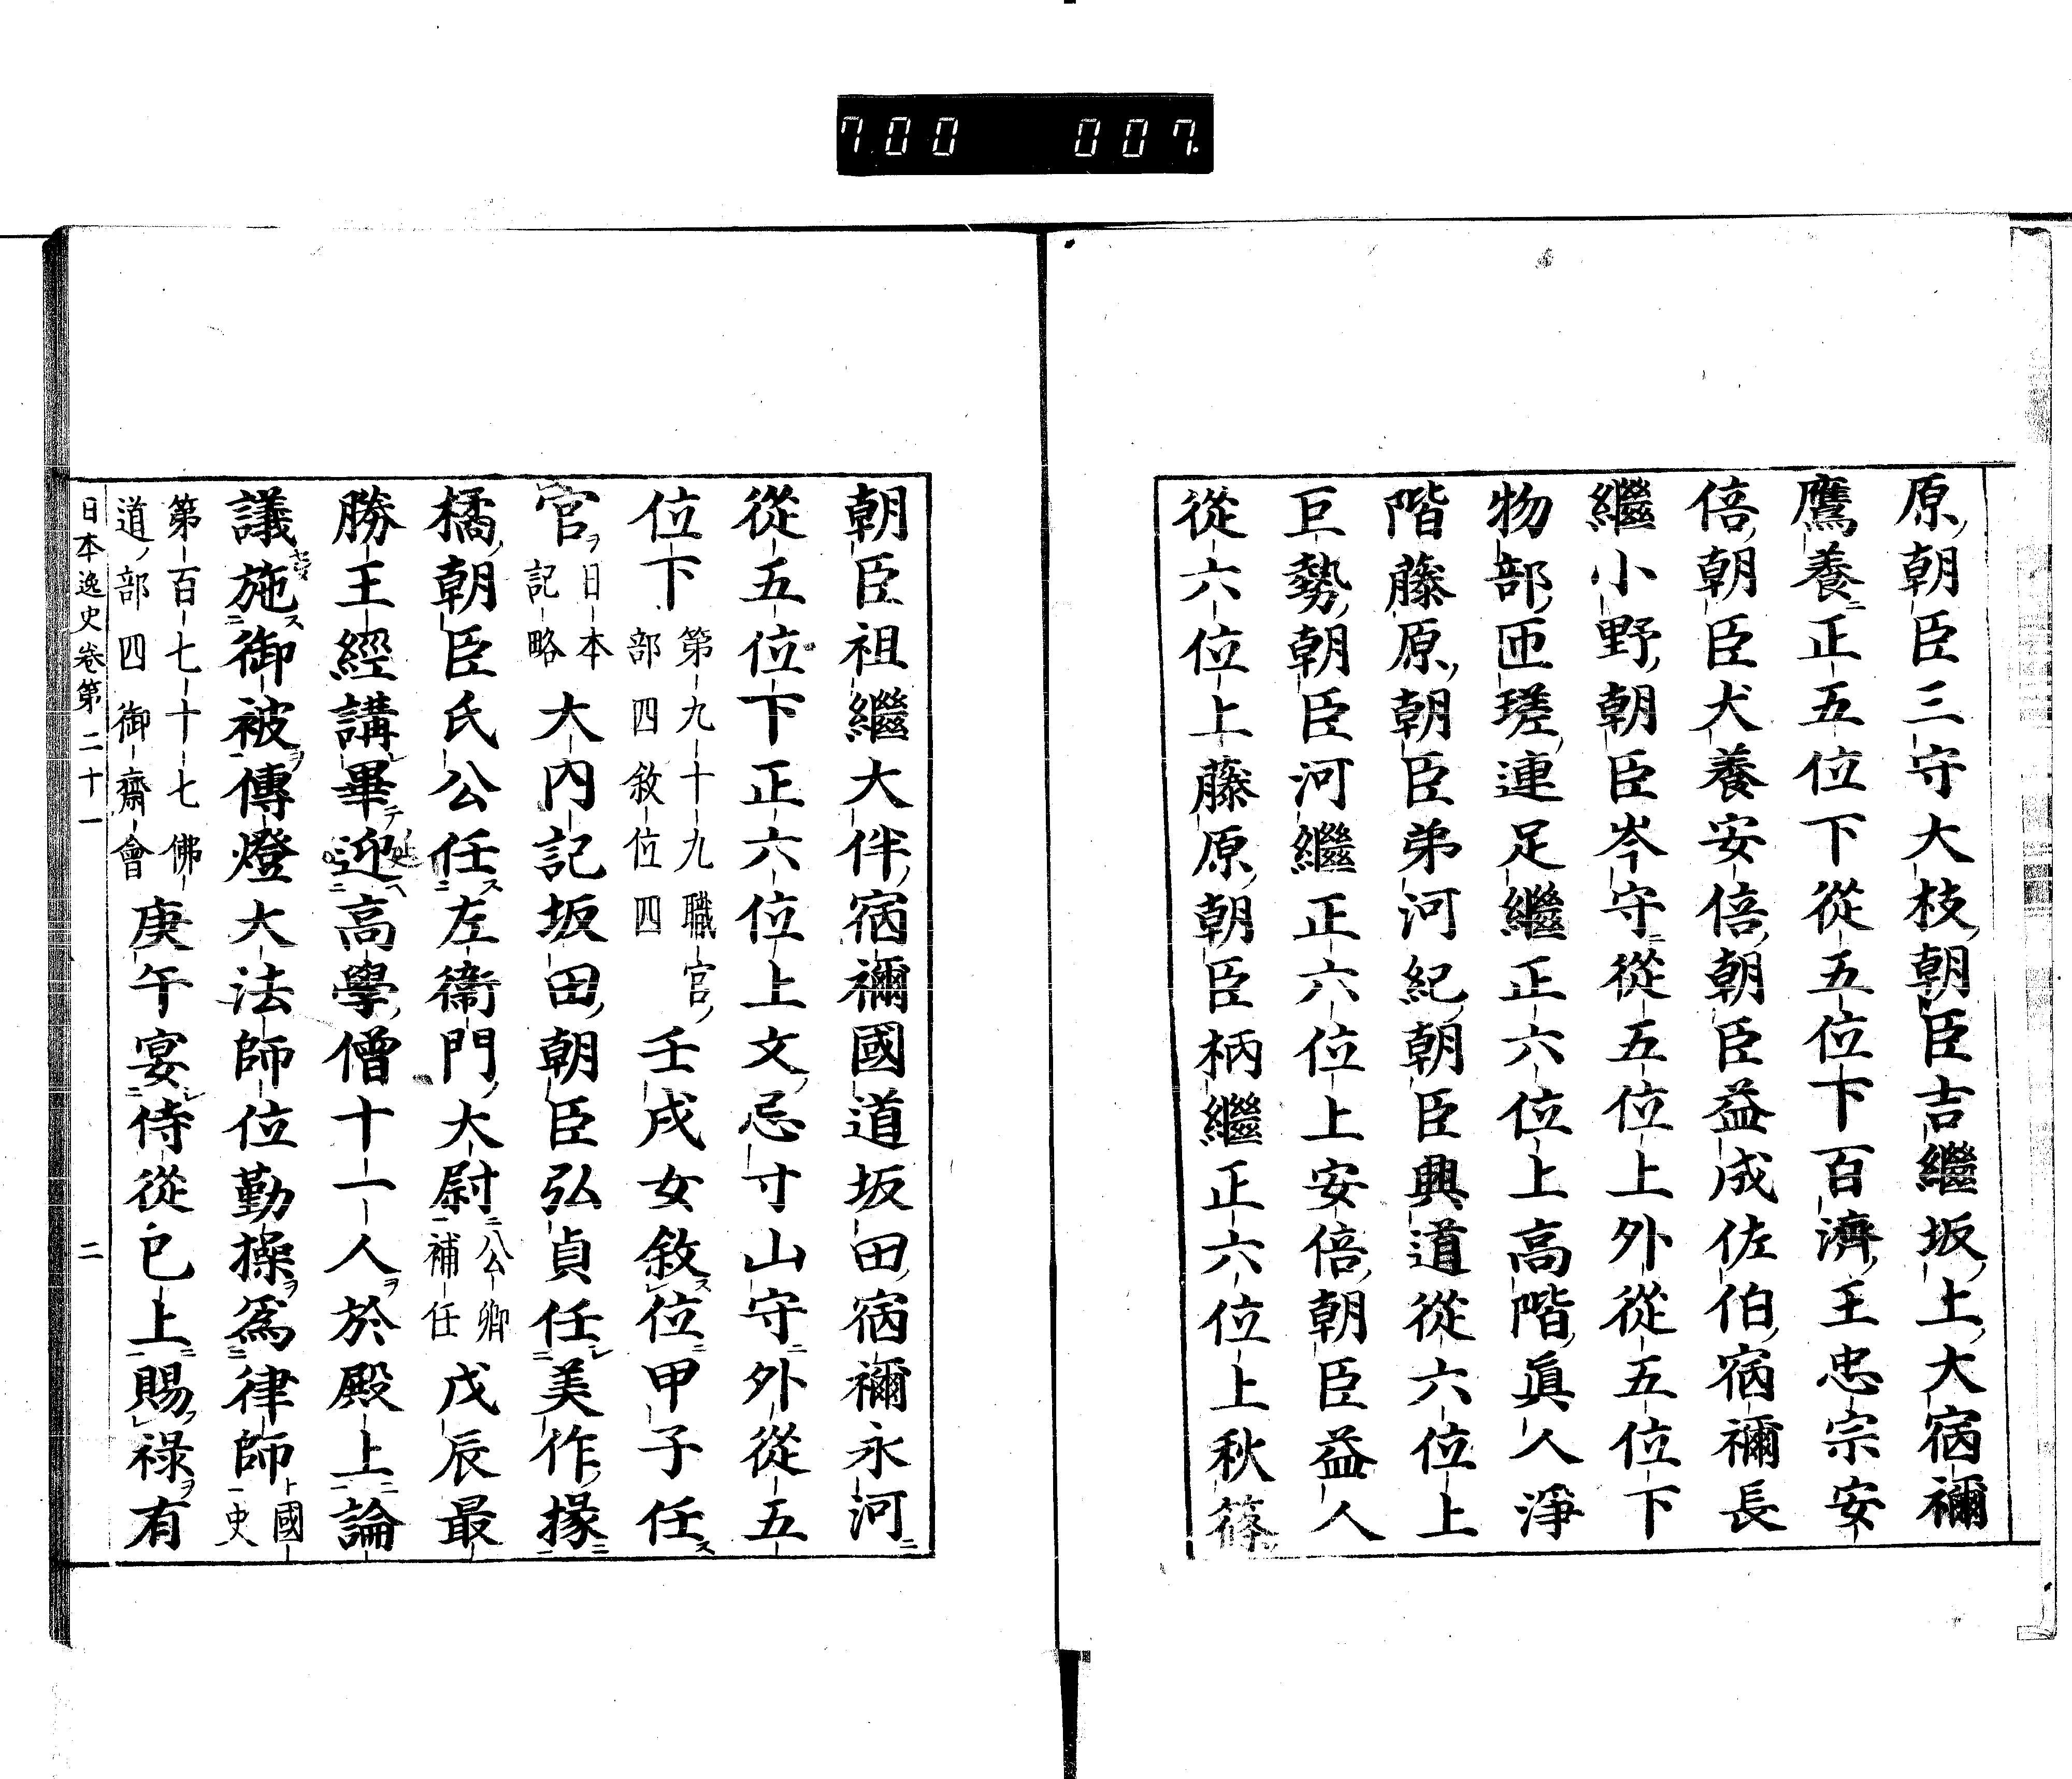 700 007
原朝臣三守大枝朝臣吉繼坂上大宿禰
鷹養正五位下從五位下百濟王忠宗安
倍朝臣犬養安倍朝臣益成佐伯宿禰長
繼小野朝臣岑守從五位上外從五位下
物部匝瑳連足繼正六位上高階眞人淨
階藤原朝臣弟河紀朝臣興道從六位上
巨勢朝臣河繼正六位上安倍朝臣益人
從六位上藤原朝臣柄繼正六位上秋篠
朝臣祖繼大伴宿禰國道坂田宿禰永河
從五位下正六位上文忌寸山守外從五
位下第九十九職官部四敘位四壬戌女敘位甲子任
官日本記略大內記坂田朝臣弘貞任美作掾
橘朝臣氏公任左衞門大尉公卿補任戊辰最
勝王經講畢迎高學僧十一人於殿上論
議施御被傳燈大法師位勤操爲律師國史
第百七十七佛道部四御齋會庚午宴侍從已上賜祿有
日本逸史卷第二十一 二